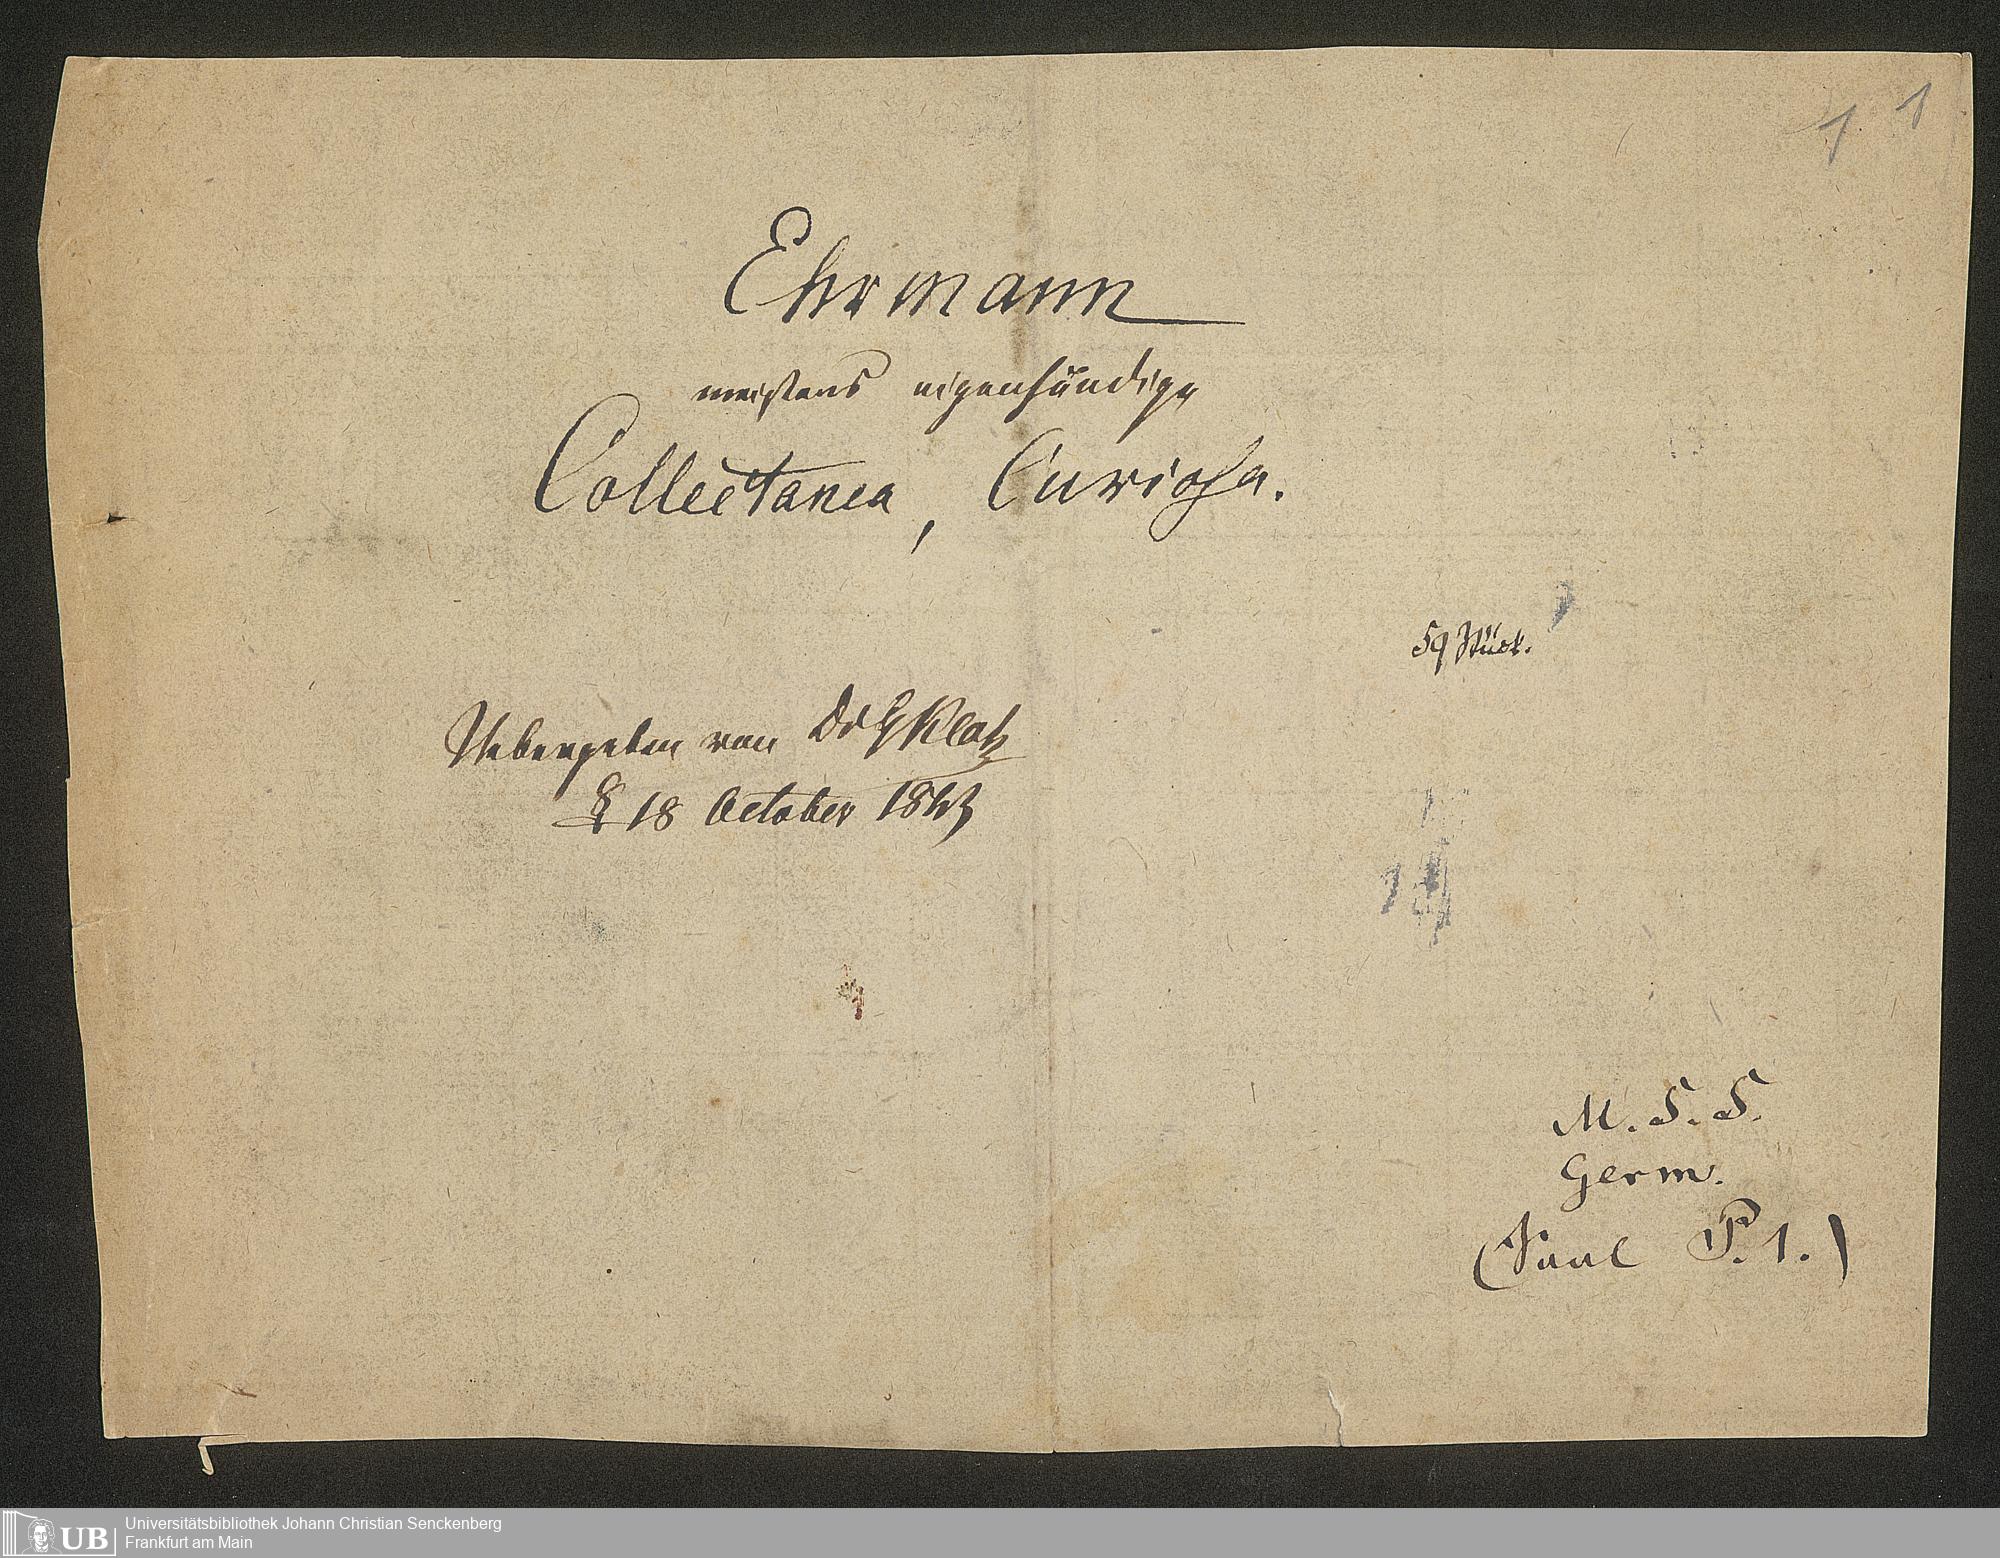 1 1
Ehrmann
meistens eigenhändige
Collectanea, Curiosa.
59 Stück.
Uebergeben von Dr
18 October 184
M. S. S.
Germ.
(Saal P. 1.)
UB
Universitätsbibliothek Johann Christian Senckenberg
Frankfurt am Main